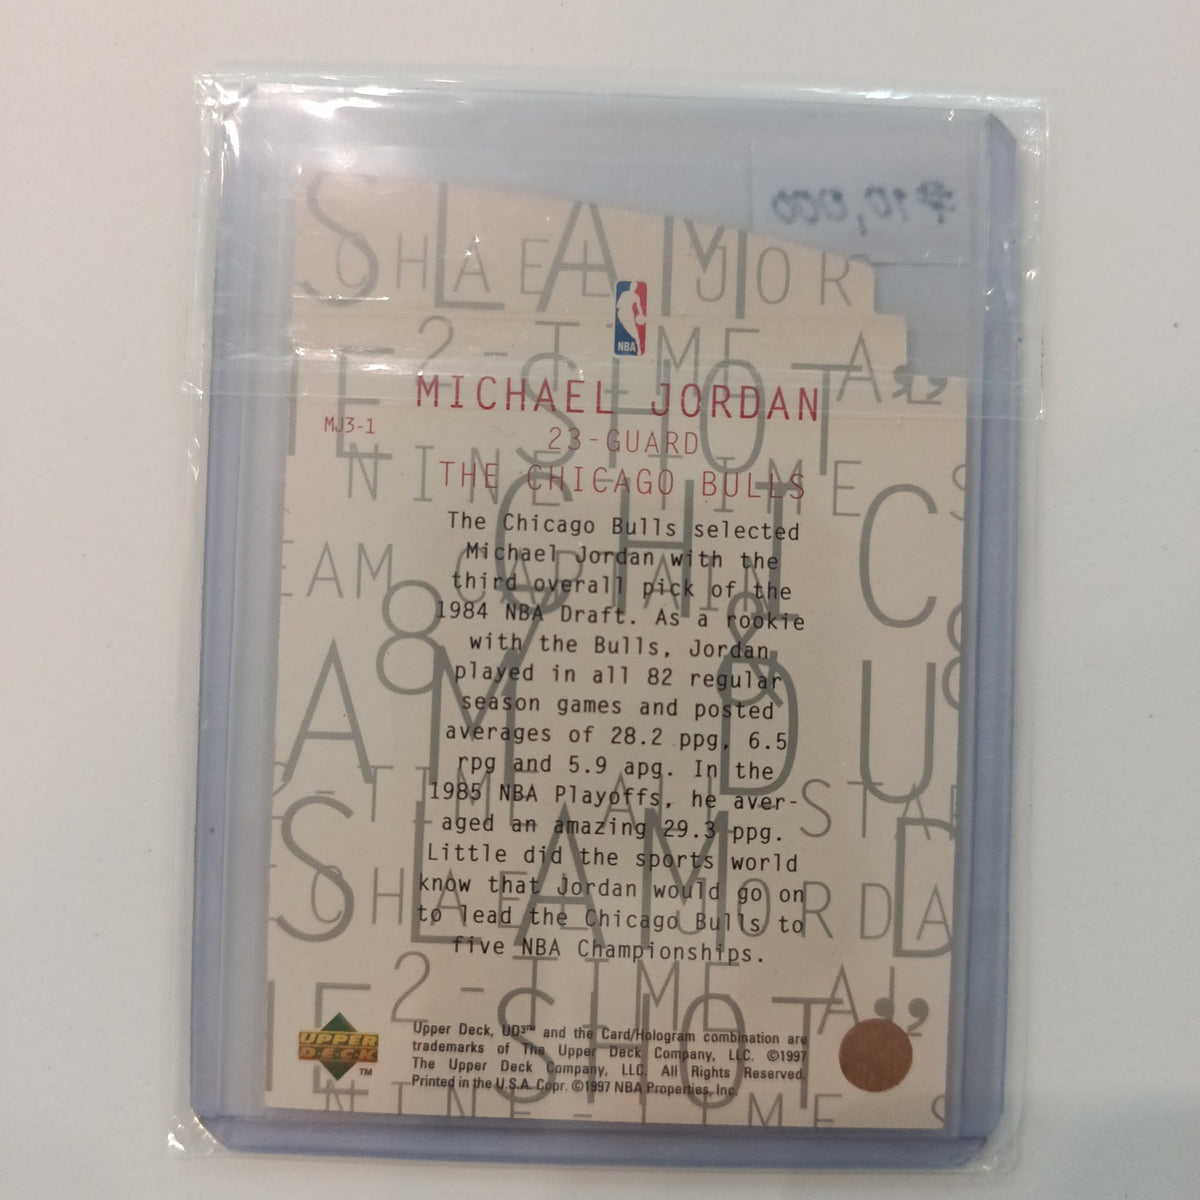 ₱10,000
SLAM
CHAEL JOR
NBA
2-TIME A
SHOT
MICHAEL JORDAN
MJ3-1
23-GUARD
NINE-TIME S
THE CHICAGO BULLS
CHIC
The Chicago Bulls selected
Michael Jordan with the
EAM CAPTAIN
third overall pick of the
1984 NBA Draft. As a rookie
8 & 8
with the Bulls, Jordan
played in all 82 regular
AM DU
season games and posted
averages of 28.2 ppg, 6.5
rpg and 5.9 apg. In the
-TIME ALL-STAR
1985 NBA Playoffs, he aver-
aged an amazing 29.3 ppg.
SLAM D
Little did the sports world
know that Jordan would go on
CHAEL JORDA
to lead the Chicago Bulls to
five NBA Championships.
2-TIME A
SHOT
UPPER
DECK
TM
Upper Deck, UD3™ and the Card/Hologram combination are
trademarks of The Upper Deck Company, LLC. ©1997
The Upper Deck Company, LLC. All Rights Reserved.
Printed in the U.S.A. Copr. ©1997 NBA Properties, Inc.
NINE-TIME S